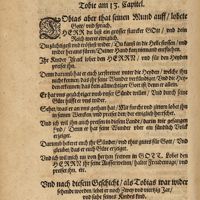 Tobie am 13. Capitel.
Tobias aber that seinen Mund auff/ lobete
Gott/ und sprach.
HERR du bist ein grosser starcker GOtt/ und dein
Reich weret ewiglich.
Du züchtigest und tröstest wider/ Du kanst in die Helle stossen/ und
wider heraus füren/ Deiner Hand kan niemand entfliehen.
Ihr Kinder Israel lobet den HERRN/ und für den Heyden
preiset ihn.
Denn darumb hat er euch zerstrewet unter die Heyden/ welche ihn
nicht kennen/ das ihr seine Wunder verkündiget/ Und die Hey-
den erkennen/ das kein allmechtiger Gott ist/ denn er allein.
Er hat uns gezüchtiget umb unser Sünde willen/ Und durch seine
Güte hilfft er uns wider.
Sehet/ was er an uns gethan hat/ Mit furcht und zittern lobet ihn
in seinen Wercken/ und preiset den/ der ewiglich herrschet.
Und ich wil ihn auch preisen in diesem Lande/ darin wir gefangen
sind/ Denn er hat seine Wunder über ein sündlich Volck
erzeiget.
Darumb bekeret euch ihr Sünder/ und thut guts für Gott/ Und
gleubet/ das er euch Güte erzeiget.
Und ich wil mich von hertzen frewen in GOTT. Lobet den
HERRN ihr seine Auserwelten/ haltet Freudentage/ und
preiset ihn.
Und nach diesem Geschicht/ als Tobias war wider
sehend worden/ lebet er noch zwey und viertzig Jar/
und sahe seines Kindes kind.